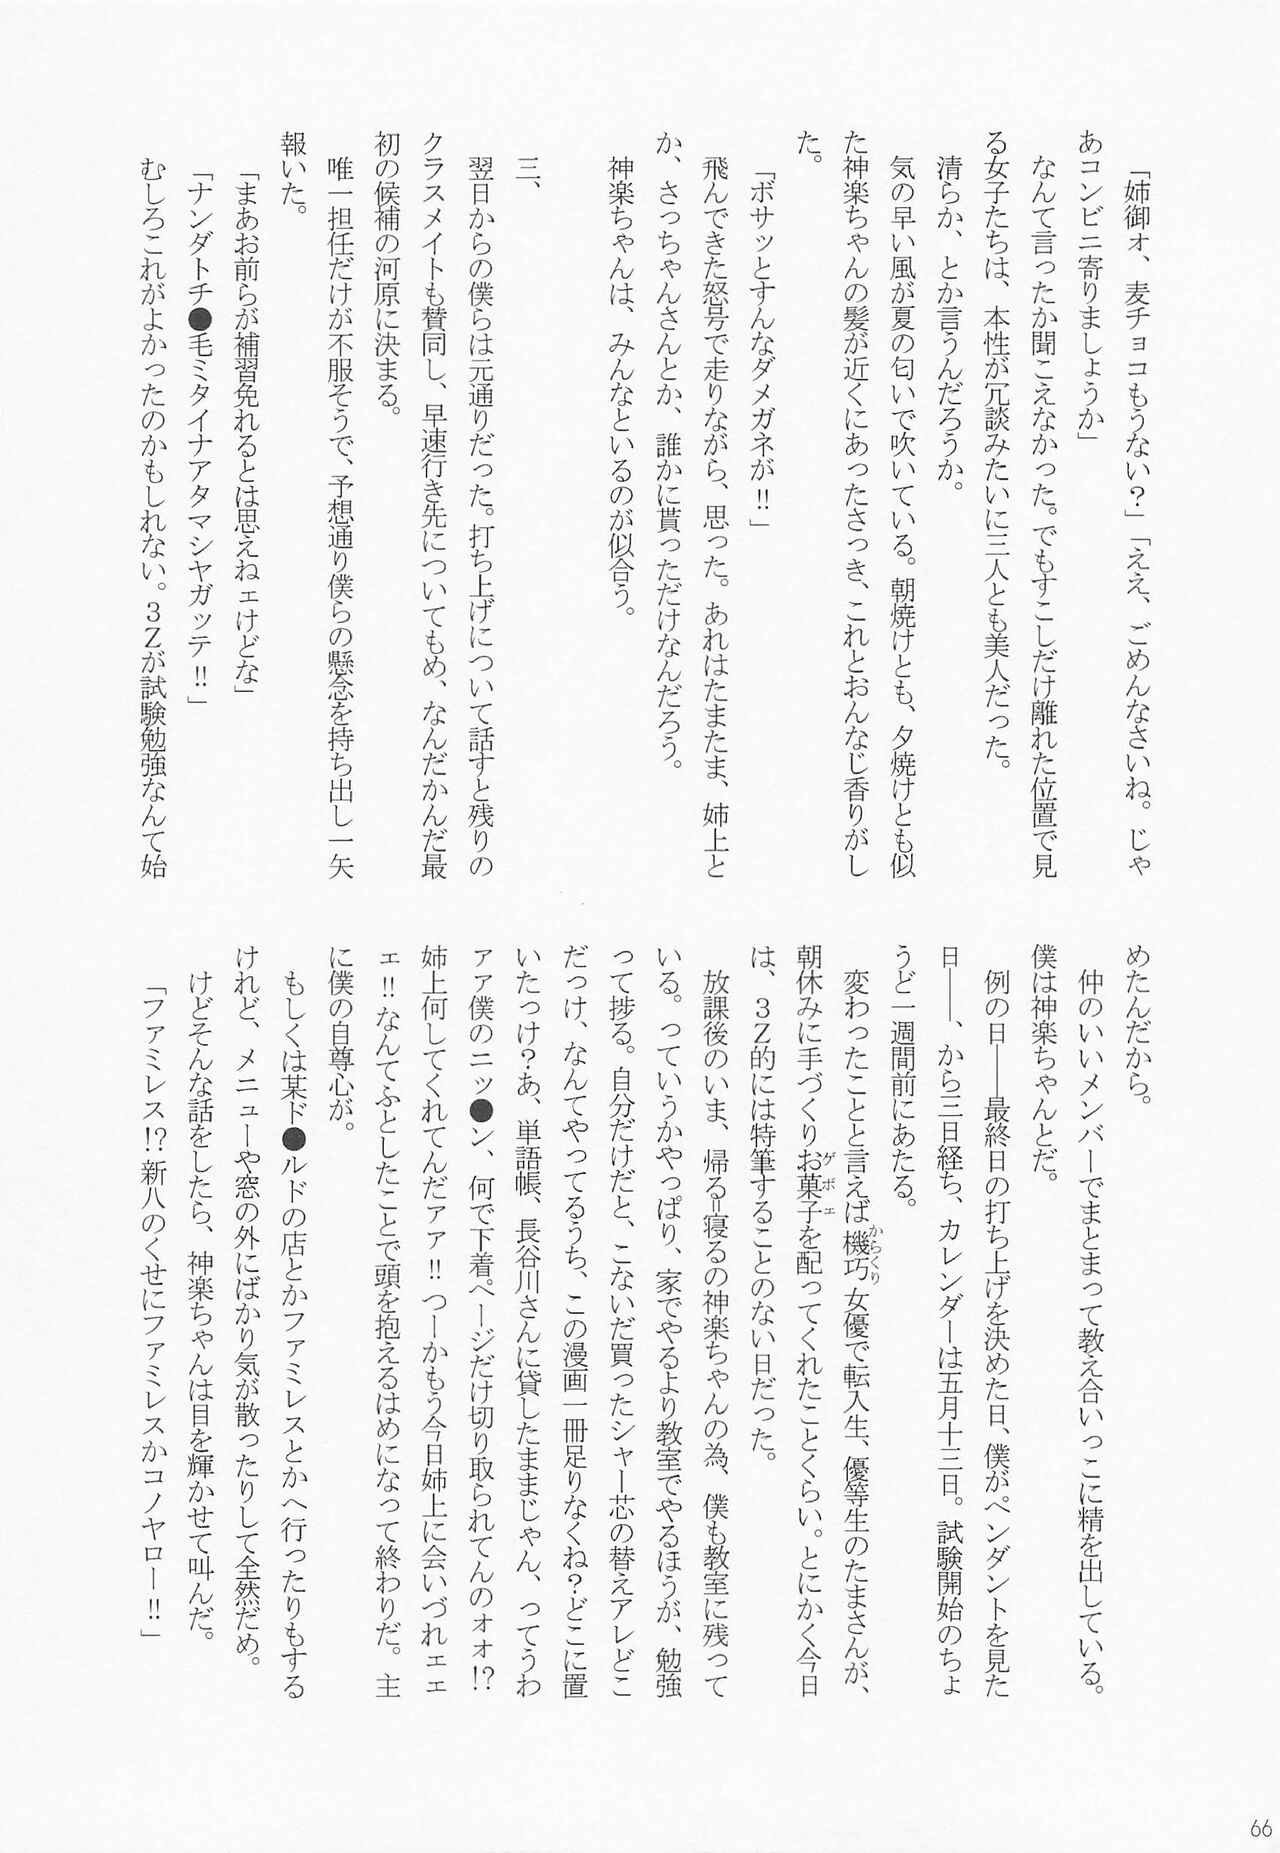 「姉御ォ、麦チョコもうない？」「ええ、ごめんなさいね。じゃ
あコンビニ寄りましょうか」
なんて言ったか聞こえなかった。でもすこしだけ離れた位置で見
る女子たちは、本性が冗談みたいに三人とも美人だった。
清らか、とか言うんだろうか。
気の早い風が夏の匂いで吹いている。朝焼けとも、夕焼けとも似
た神楽ちゃんの髪が近くにあったさっき、これとおんなじ香りがし
た。
「ボサッとすんなダメガネが!!」
飛んできた怒号で走りながら、思った。あれはたまたま、姉上と
か、さっちゃんさんとか、誰かに貰っただけなんだろう。
神楽ちゃんは、みんなといるのが似合う。
三、
翌日からの僕らは元通りだった。打ち上げについて話すと残りの
クラスメイトも賛同し、早速行き先についてもめ、なんだかんだ最
初の候補の河原に決まる。
唯一担任だけが不服そうで、予想通り僕らの懸念を持ち出し一矢
報いた。
「まあお前らが補習免れるとは思えねェけどな」
「ナンダトチ●毛ミタイナアタマシヤガッテ!!」
むしろこれがよかったのかもしれない。３Ｚが試験勉強なんて始
めたんだから。
仲のいいメンバーでまとまって教え合いっこに精を出している。
僕は神楽ちゃんとだ。
例の日――最終日の打ち上げを決めた日、僕がペンダントを見た
日――、から三日経ち、カレンダーは五月十三日。試験開始のちょ
うど一週間前にあたる。
変わったことと言えば機巧女優で転入生、優等生のたまさんが、
からくり
朝休みに手づくりお菓子を配ってくれたことくらい。とにかく今日
ゲボェ
は、３Ｚ的には特筆することのない日だった。
放課後のいま、帰る＝寝るの神楽ちゃんの為、僕も教室に残って
いる。っていうかやっぱり、家でやるより教室でやるほうが、勉強
って捗る。自分だけだと、こないだ買ったシャー芯の替えアレどこ
だっけ、なんてやってるうち、この漫画一冊足りなくね？どこに置
いたっけ？あ、単語帳、長谷川さんに貸したままじゃん、ってうわ
ァァ僕のニッ●ン、何で下着ページだけ切り取られてんのォォ!?
姉上何してくれてんだァァ!!つーかもう今日姉上に会いづれェェ
ェ!!なんてふとしたことで頭を抱えるはめになって終わりだ。主
に僕の自尊心が。
もしくは某ド●ルドの店とかファミレスとかへ行ったりもする
けれど、メニューや窓の外にばかり気が散ったりして全然だめ。
けどそんな話をしたら、神楽ちゃんは目を輝かせて叫んだ。
「ファミレス!?新八のくせにファミレスかコノヤロー!!」
66